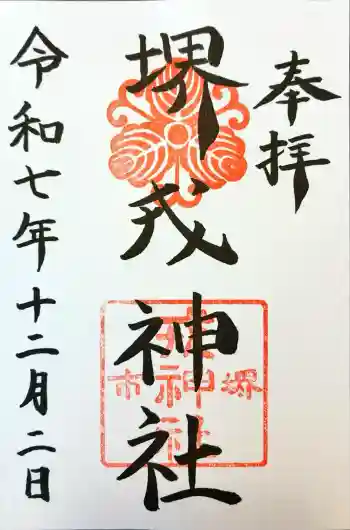 奉拝
堺戎神社
令和七年十二月二日
堺
市
神社